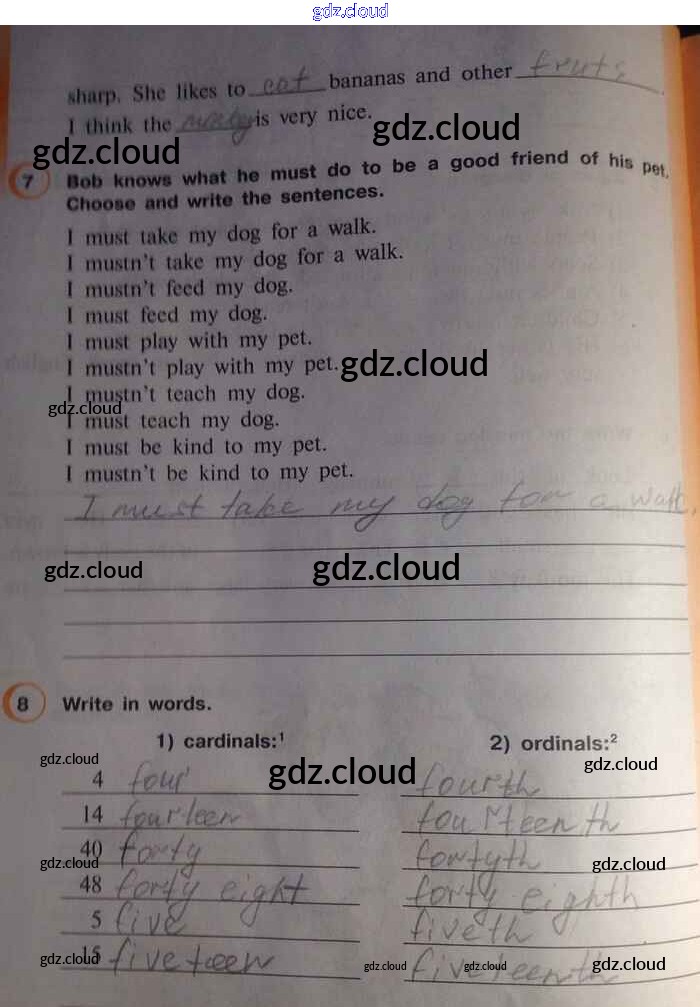 gdz.cloud
sharp. She likes to eat bananas and other fruts.
I think the is very nice.
gdz.cloud
gdz.cloud
7 Bob knows what he must do to be a good friend of his pet.
Choose and write the sentences.
I must take my dog for a walk.
I mustn't take my dog for a walk.
I mustn't feed my dog.
I must feed my dog.
I must play with my pet.
I mustn't play with my pet.
gdz.cloud
I mustn't teach my dog.
gdz.cloud
I must teach my dog.
I must be kind to my pet.
I mustn't be kind to my pet.
I must take my dog for a walk.
gdz.cloud gdz.cloud
8 Write in words.
1) cardinals:¹ 2) ordinals:²
gdz.cloud gdz.cloud gdz.cloud
4 four fourth
14 fourteen fourteenth
40 forty fortyth
gdz.cloud gdz.cloud
48 forty eight forty eighth
5 five fiveth
15 fiveteen fiveteenth
gdz.cloud gdz.cloud gdz.cloud gdz.cloud